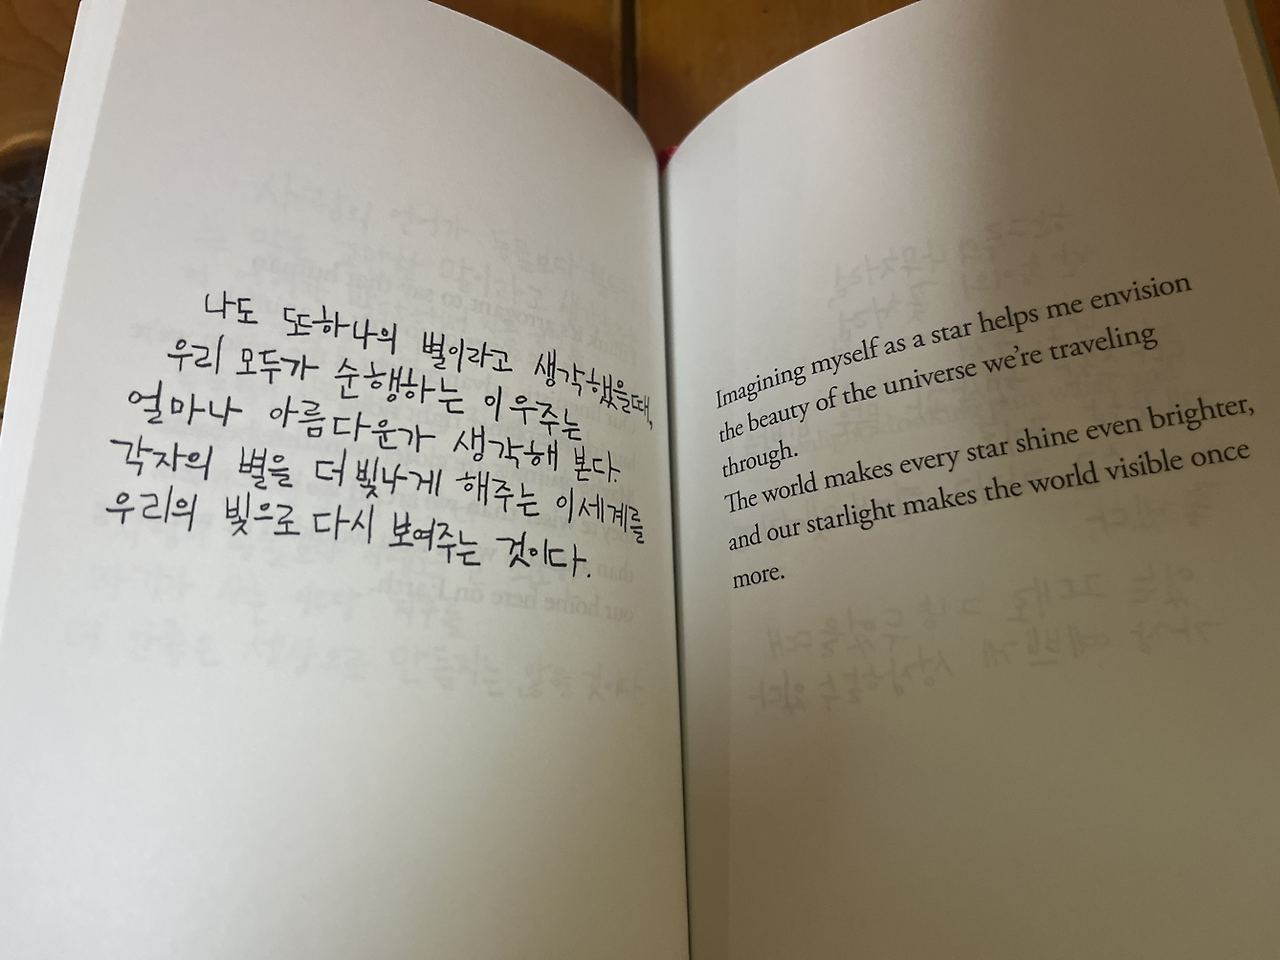 나도 또하나의 별이라고 생각했을때,
우리 모두가 순행하는 이 우주는
얼마나 아름다운가 생각해 본다.
각자의 별을 더 빛나게 해주는 이세계를
우리의 빛으로 다시 보여주는 것이다.
Imagining myself as a star helps me envision
the beauty of the universe we're traveling
through.
The world makes every star shine even brighter,
and our starlight makes the world visible once
more.